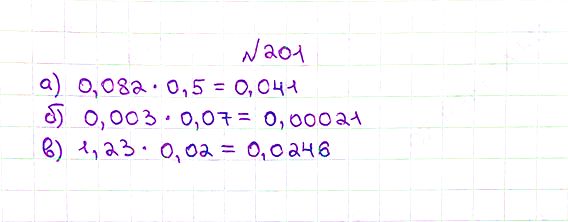 №201
а) 0,082 · 0,5 = 0,041
б) 0,003 · 0,07 = 0,00021
в) 1,23 · 0,02 = 0,0246